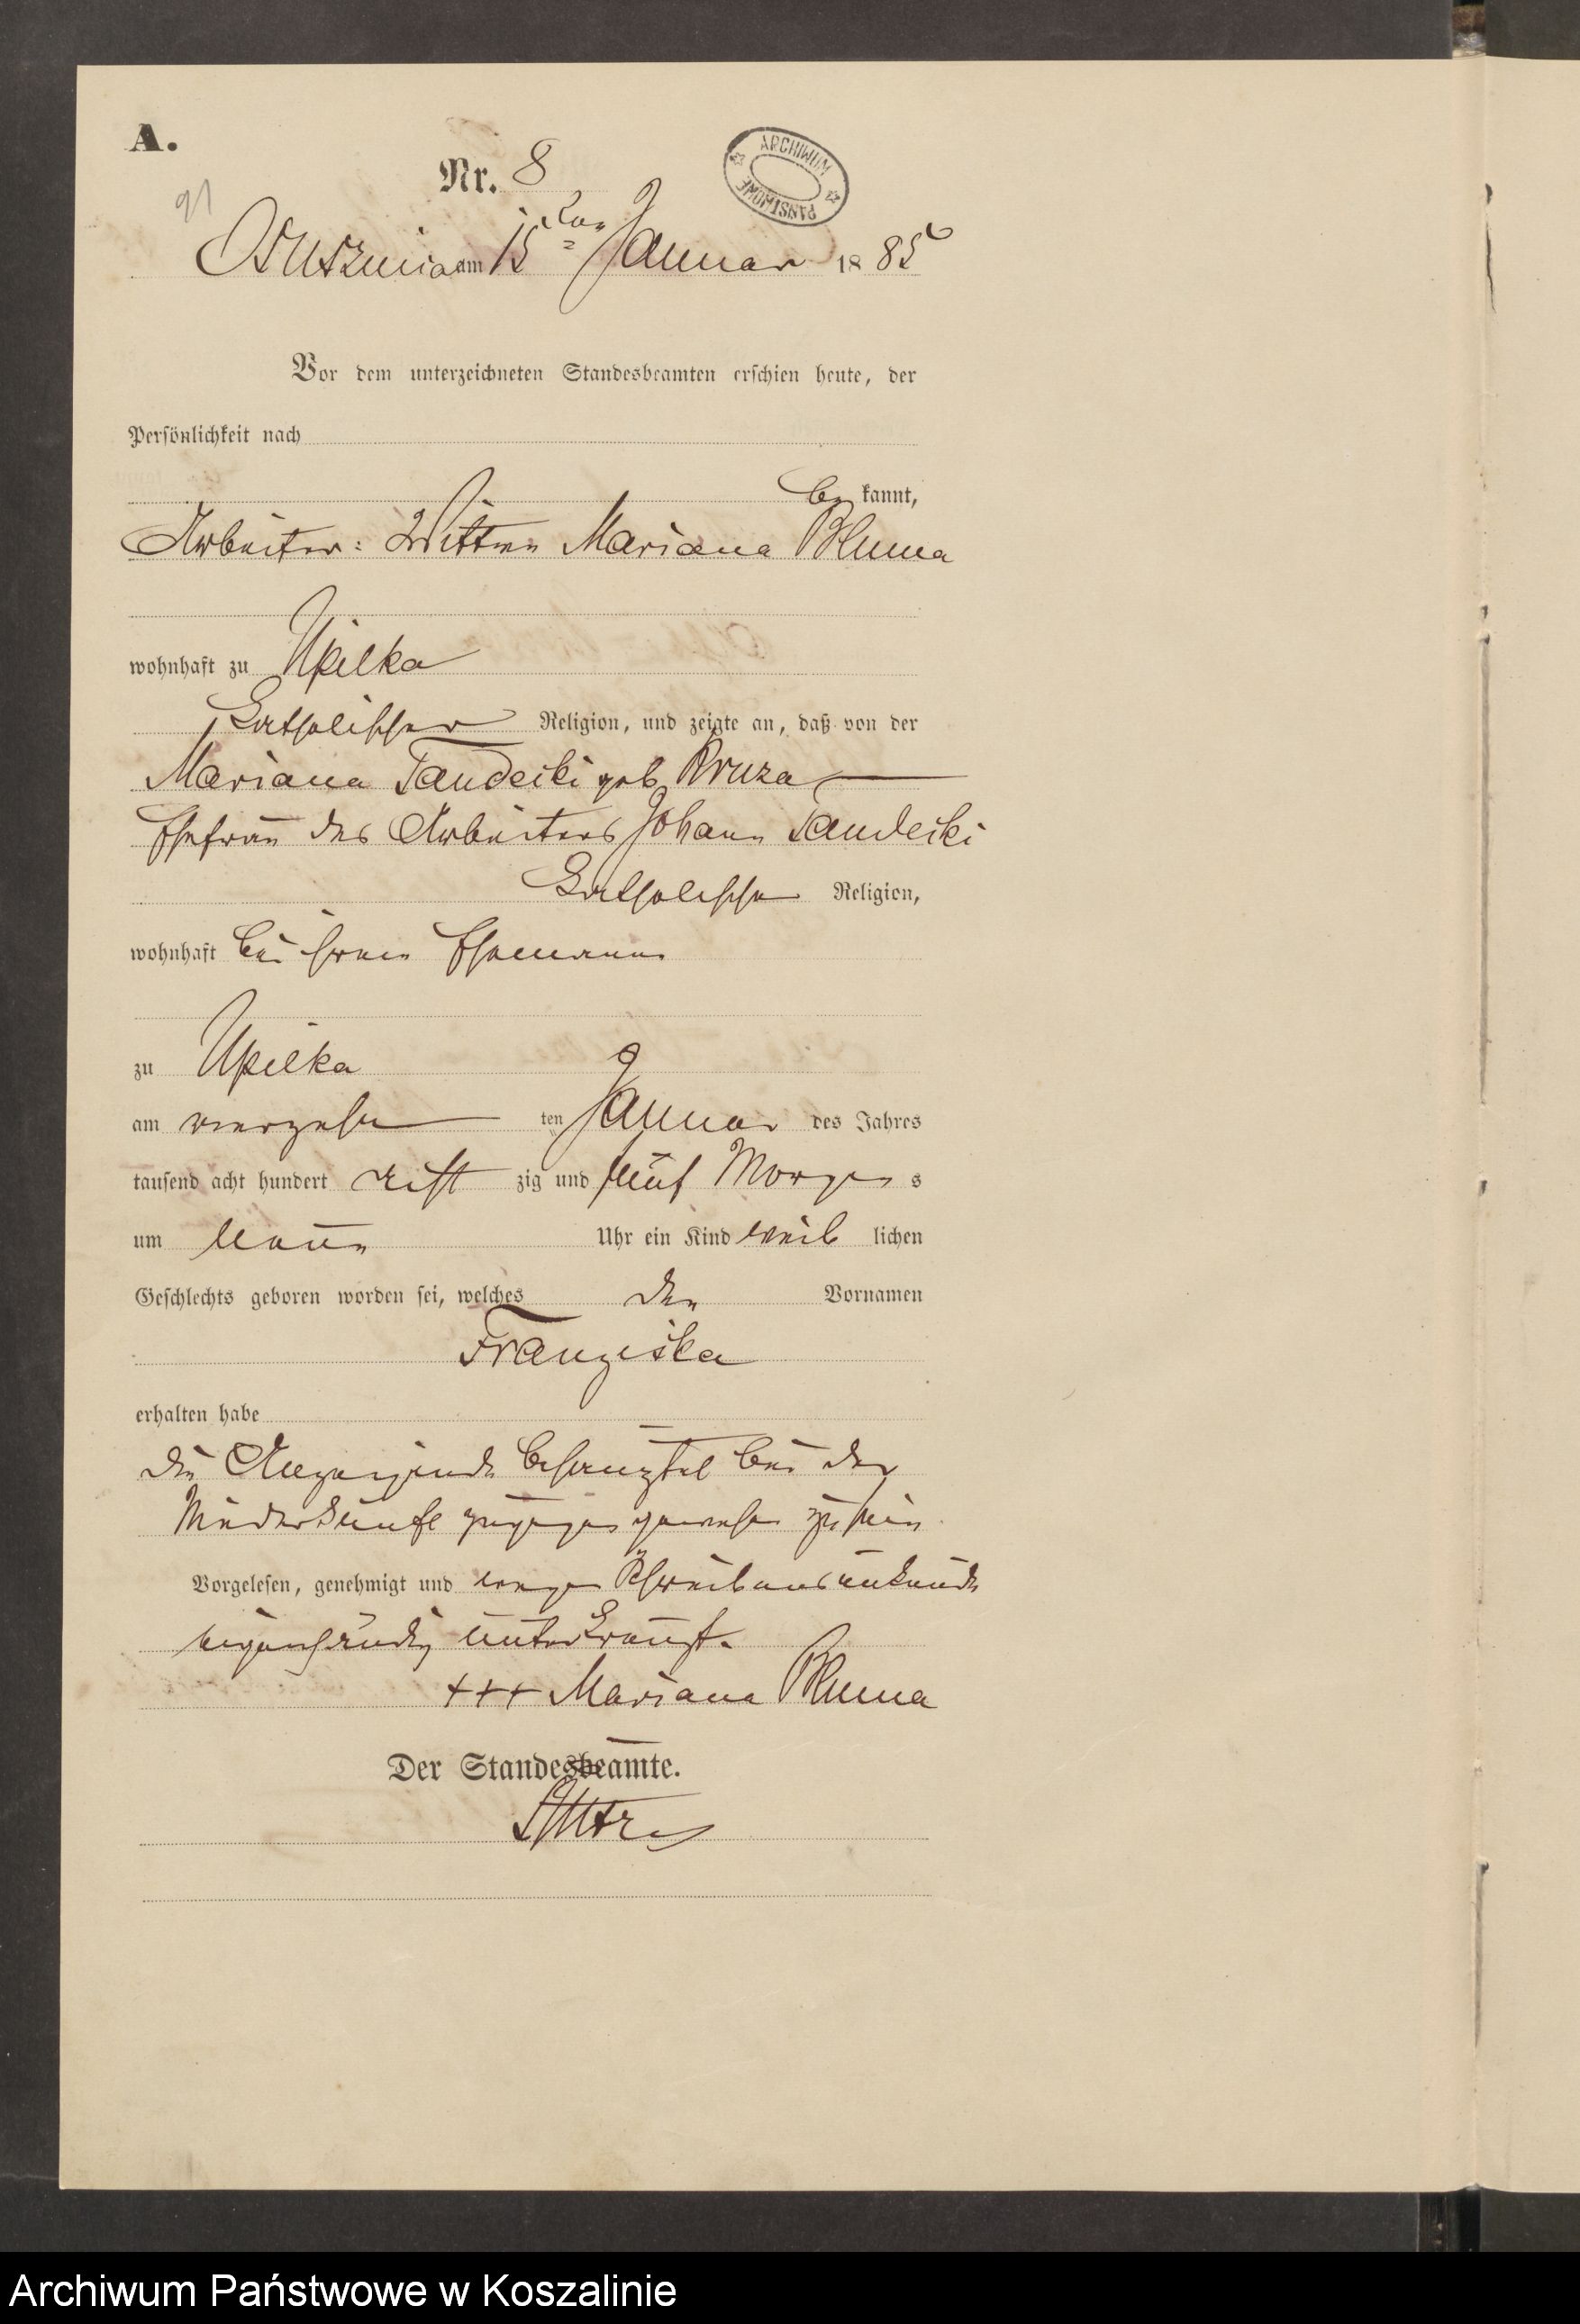 A.
Nr. 8
91
ARCHIWUM PAŃSTWOWE
Osusznica am 15ten Januar 1885
Vor dem unterzeichneten Standesbeamten erschien heute, der
Persönlichkeit nach
be kannt,
Arbeiter: Wittwe Mariana Bluma
wohnhaft zu Upilka
katholischer Religion, und zeigte an, daß von der
Mariana Tandecki geb
Ehefrau des Arbeiters Johann Tandecki
katholischer Religion,
wohnhaft bei ihrem Ehemann
zu Upilka
am vierzehn ten Januar des Jahres
tausend acht hundert acht zig und fünf Morgen s
um neun Uhr ein Kind weib lichen
Geschlechts geboren worden sei, welches den Vornamen
Franziska
erhalten habe
Die Anzeigende behauptet bei der
Niederkunft zugegen gewesen zu sein
Vorgelesen, genehmigt und wegen Schreibensunkunde
eigenhändig unterkreuzt.
+++ Mariana Bluma
Der Standesbeamte.
Archiwum Państwowe w Koszalinie